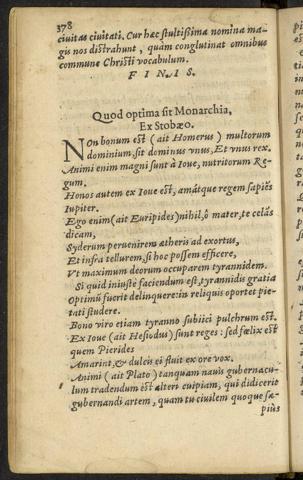 378
ciuitas ciuitati. Cur hæc stultissima nomina ma-
gis nos distrahunt, quam conglutinat omnibus
commune Christi vocabulum.
F I N I S.
Quod optima sit Monarchia,
Ex Stobæo.
NOn bonum est (ait Homerus) multorum
dominium. sit dominus vnus, Et vnus rex.
Animi enim magni sunt à Ioue, nutritorum Re-
gum.
Honos autem ex Ioue est, amátque regem sapiēs
Iupiter.
Ego enim (ait Euripides) nihil, ô mater, te celās
dicam,
Syderum peruenirem ætheris ad exortus,
Et infra tellurem, si hoc possem efficere,
Vt maximum deorum occuparem tyrannidem.
Si quid iniustè faciendum est, tyrannidis gratia
Optimū fuerit delinquere: in reliquis oportet pie-
tati studere.
Bono viro etiam tyranno subiici pulchrum est.
Ex Ioue (ait Hesiodus) sunt reges: sed fœlix est
quem Pierides
Amarint, & dulcis ei fluit ex ore vox.
Animi (ait Plato) tanquam nauis gubernacu-
lum tradendum est alteri cuipiam, qui didicerit
gubernandi artem, quam tu ciuilem quoque sæ-
piùs